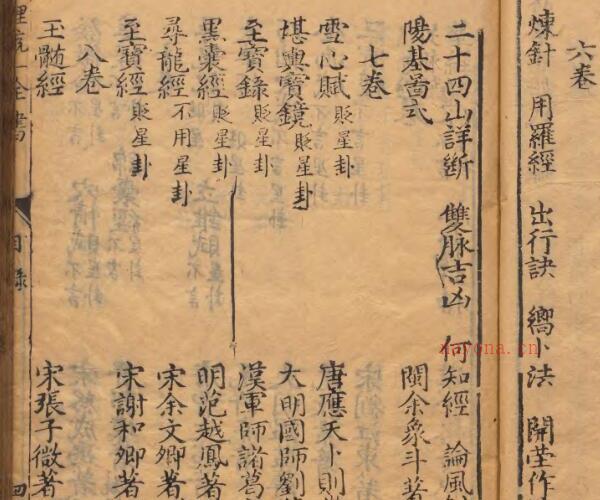 六卷
煉針 用羅經 出行訣 嚮卜法 開堂作
二十四山詳断 雙脉吉凶 何知經 論風
陽基啚式 閩余象斗著
七卷
雪心賦貶星卦 唐應天卜則
堪輿寶鏡貶星卦 大明國師劉
至寶錄貶星卦 漢軍師諸葛
黑囊經貶星卦 明范越鳳著
尋龍經不用星卦 宋余文卿著
至寶經貶星卦 宋謝和卿著
八卷
玉髄經 宋張子微著
理氣一全書 目錄 四
nayona.cn